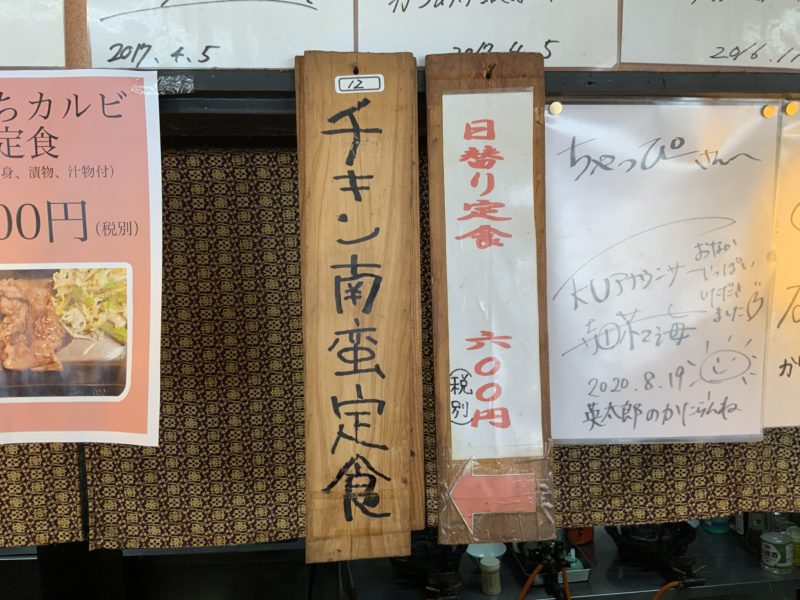 2017.4.5
2017.4.5
2016.11
ちカルビ
定食
身、漬物、汁物付）
00円（税別）
12
チキン南蛮定食
日替り定食
六〇〇円
（税別）
ちゃっぴーさんへ
KUアナウンサー
おなか
いっぱい
いただき
ました
2020.8.19
英太郎のかたらんね